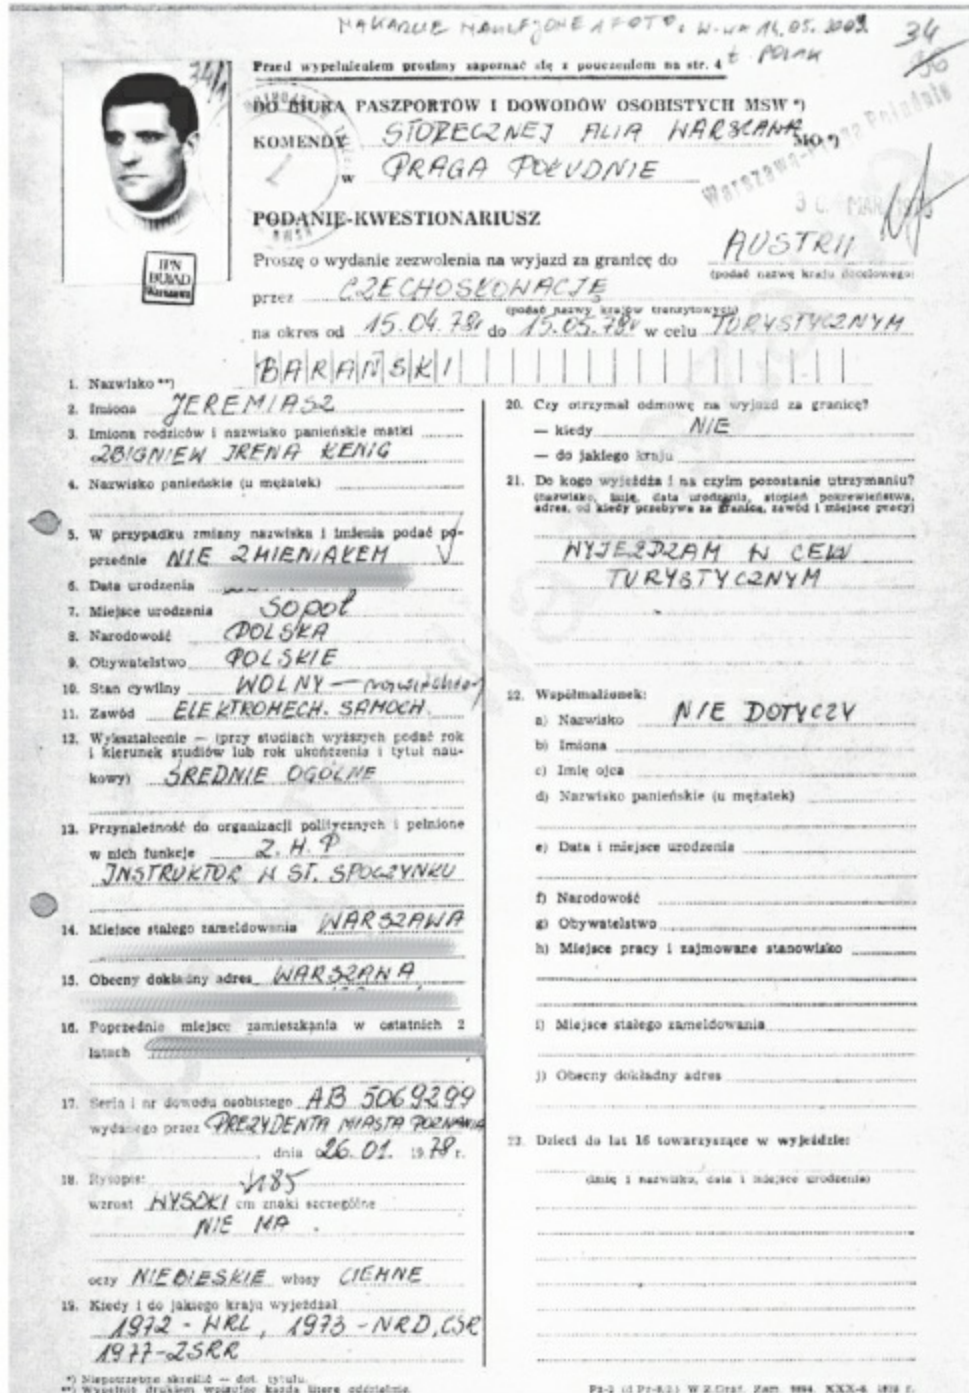 34
34/1
Przed wypełnieniem prosimy zapoznać się z pouczeniem na str. 4
DO BIURA PASZPORTÓW I DOWODÓW OSOBISTYCH MSW *)
KOMENDY STOŁECZNEJ MO *)
w PRAGA POŁUDNIE
Warszawa-Praga Południe
PODANIE-KWESTIONARIUSZ
IPN
BUiAD
Warszawa
Proszę o wydanie zezwolenia na wyjazd za granicę do AUSTRII
(podać nazwę kraju docelowego)
przez CZECHOSŁOWACJĘ
(podać nazwy krajów tranzytowych)
na okres od 15.04.78r do 15.05.78r w celu TURYSTYCZNYM
1. Nazwisko **) BARAŃSKI
2. Imiona JEREMIASZ
3. Imiona rodziców i nazwisko panieńskie matki
ZBIGNIEW IRENA KENIG
4. Nazwisko panieńskie (u mężatek)
5. W przypadku zmiany nazwiska i imienia podać po-
przednie NIE ZMIENIAŁEM
6. Data urodzenia
7. Miejsce urodzenia Sopot
8. Narodowość POLSKA
9. Obywatelstwo POLSKIE
10. Stan cywilny WOLNY —
11. Zawód ELEKTROMECH. SAMOCH.
12. Wykształcenie — (przy studiach wyższych podać rok
i kierunek studiów lub rok ukończenia i tytuł nau-
kowy) ŚREDNIE OGÓLNE
13. Przynależność do organizacji politycznych i pełnione
w nich funkcje Z.H.P
INSTRUKTOR W ST. SPOCZYNKU
14. Miejsce stałego zameldowania WARSZAWA
15. Obecny dokładny adres WARSZAWA
16. Poprzednie miejsce zamieszkania w ostatnich 2
latach
17. Seria i nr dowodu osobistego AB 5069299
wydanego przez PREZYDENTA MIASTA POZNANIA
dnia 26.01. 1978 r.
18. Rysopis: 185
wzrost WYSOKI cm znaki szczególne
NIE MA.
oczy NIEBIESKIE włosy CIEMNE
19. Kiedy i do jakiego kraju wyjeżdżał
1972 - WRL, 1973 - NRD, CSR
1977 - ZSRR
20. Czy otrzymał odmowę na wyjazd za granicę?
— kiedy NIE
— do jakiego kraju
21. Do kogo wyjeżdża i na czyim pozostanie utrzymaniu?
(nazwisko, imię, data urodzenia, stopień pokrewieństwa,
adres, od kiedy przebywa za granicą, zawód i miejsce pracy)
WYJEŻDŻAM W CELU
TURYSTYCZNYM
22. Współmałżonek:
a) Nazwisko NIE DOTYCZY
b) Imiona
c) Imię ojca
d) Nazwisko panieńskie (u mężatek)
e) Data i miejsce urodzenia
f) Narodowość
g) Obywatelstwo
h) Miejsce pracy i zajmowane stanowisko
i) Miejsce stałego zameldowania
j) Obecny dokładny adres
23. Dzieci do lat 16 towarzyszące w wyjeździe:
(imię i nazwisko, data i miejsce urodzenia)
*) Niepotrzebne skreślić — dot. tytułu.
**) Wypełnić drukiem wpisując każdą literę oddzielnie.